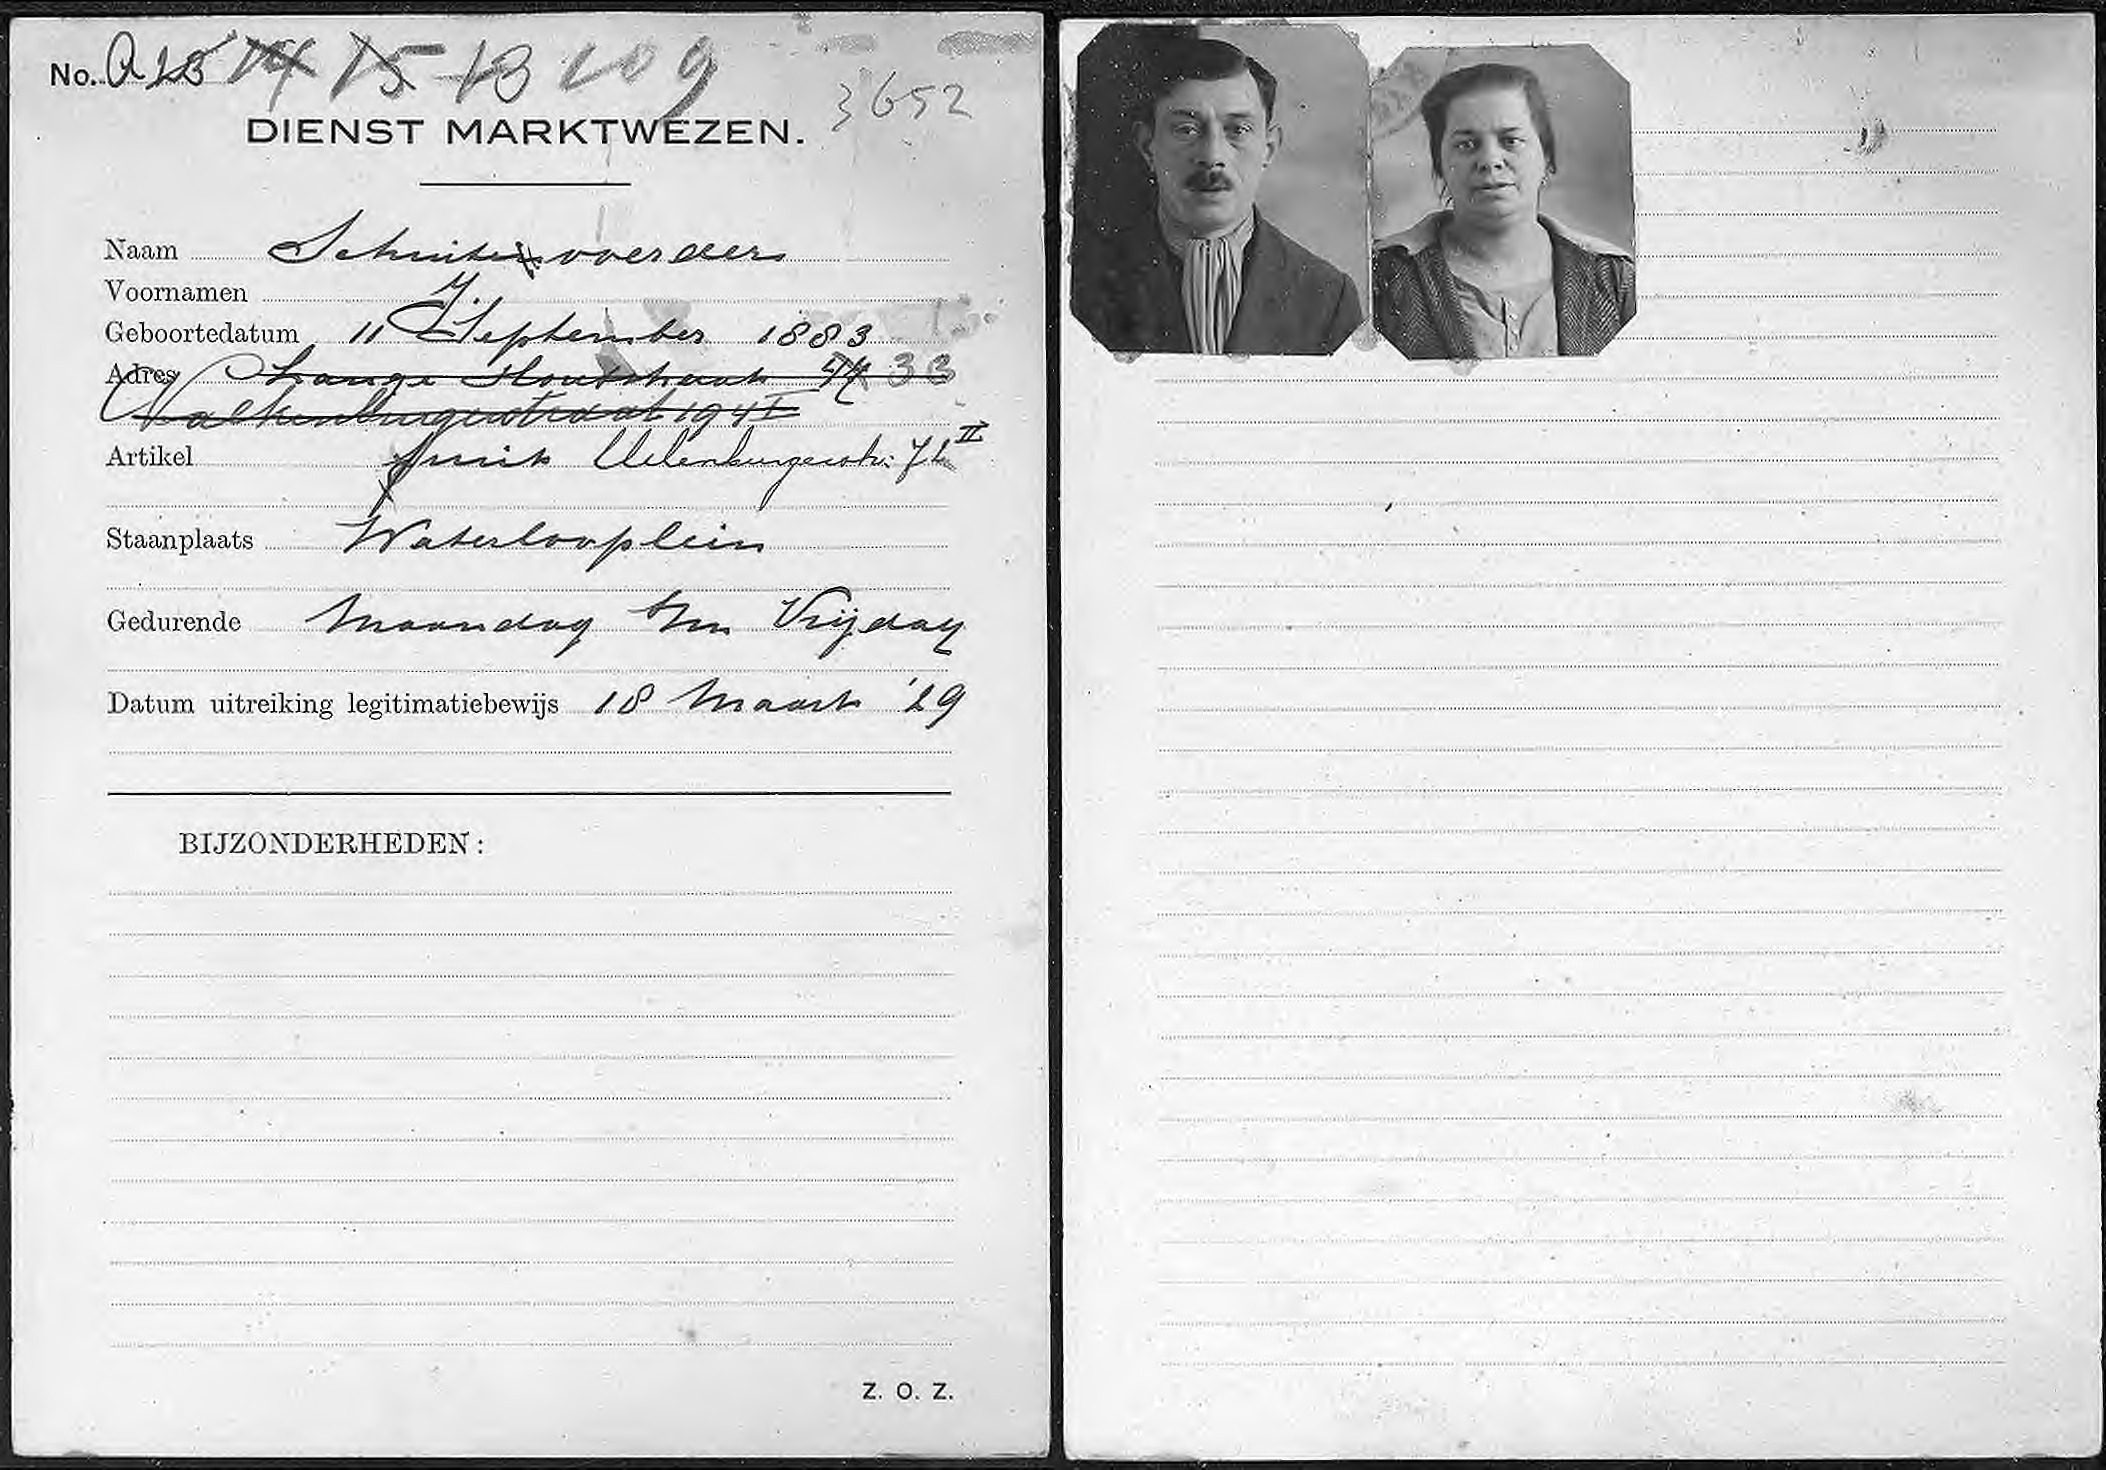 No. A 13 14 15 13 109
3652
DIENST MARKTWEZEN.
Naam Schuitevoerder
Voornamen J.
Geboortedatum 11 September 1883
Adres Lange Houtstraat 33
Valkenburgerstraat 194 I
Artikel fruit Uilenburgerstr: 72 II
Staanplaats Waterlooplein
Gedurende Maandag t/m Vrijdag
Datum uitreiking legitimatiebewijs 18 Maart '29
BIJZONDERHEDEN:
Z. O. Z.